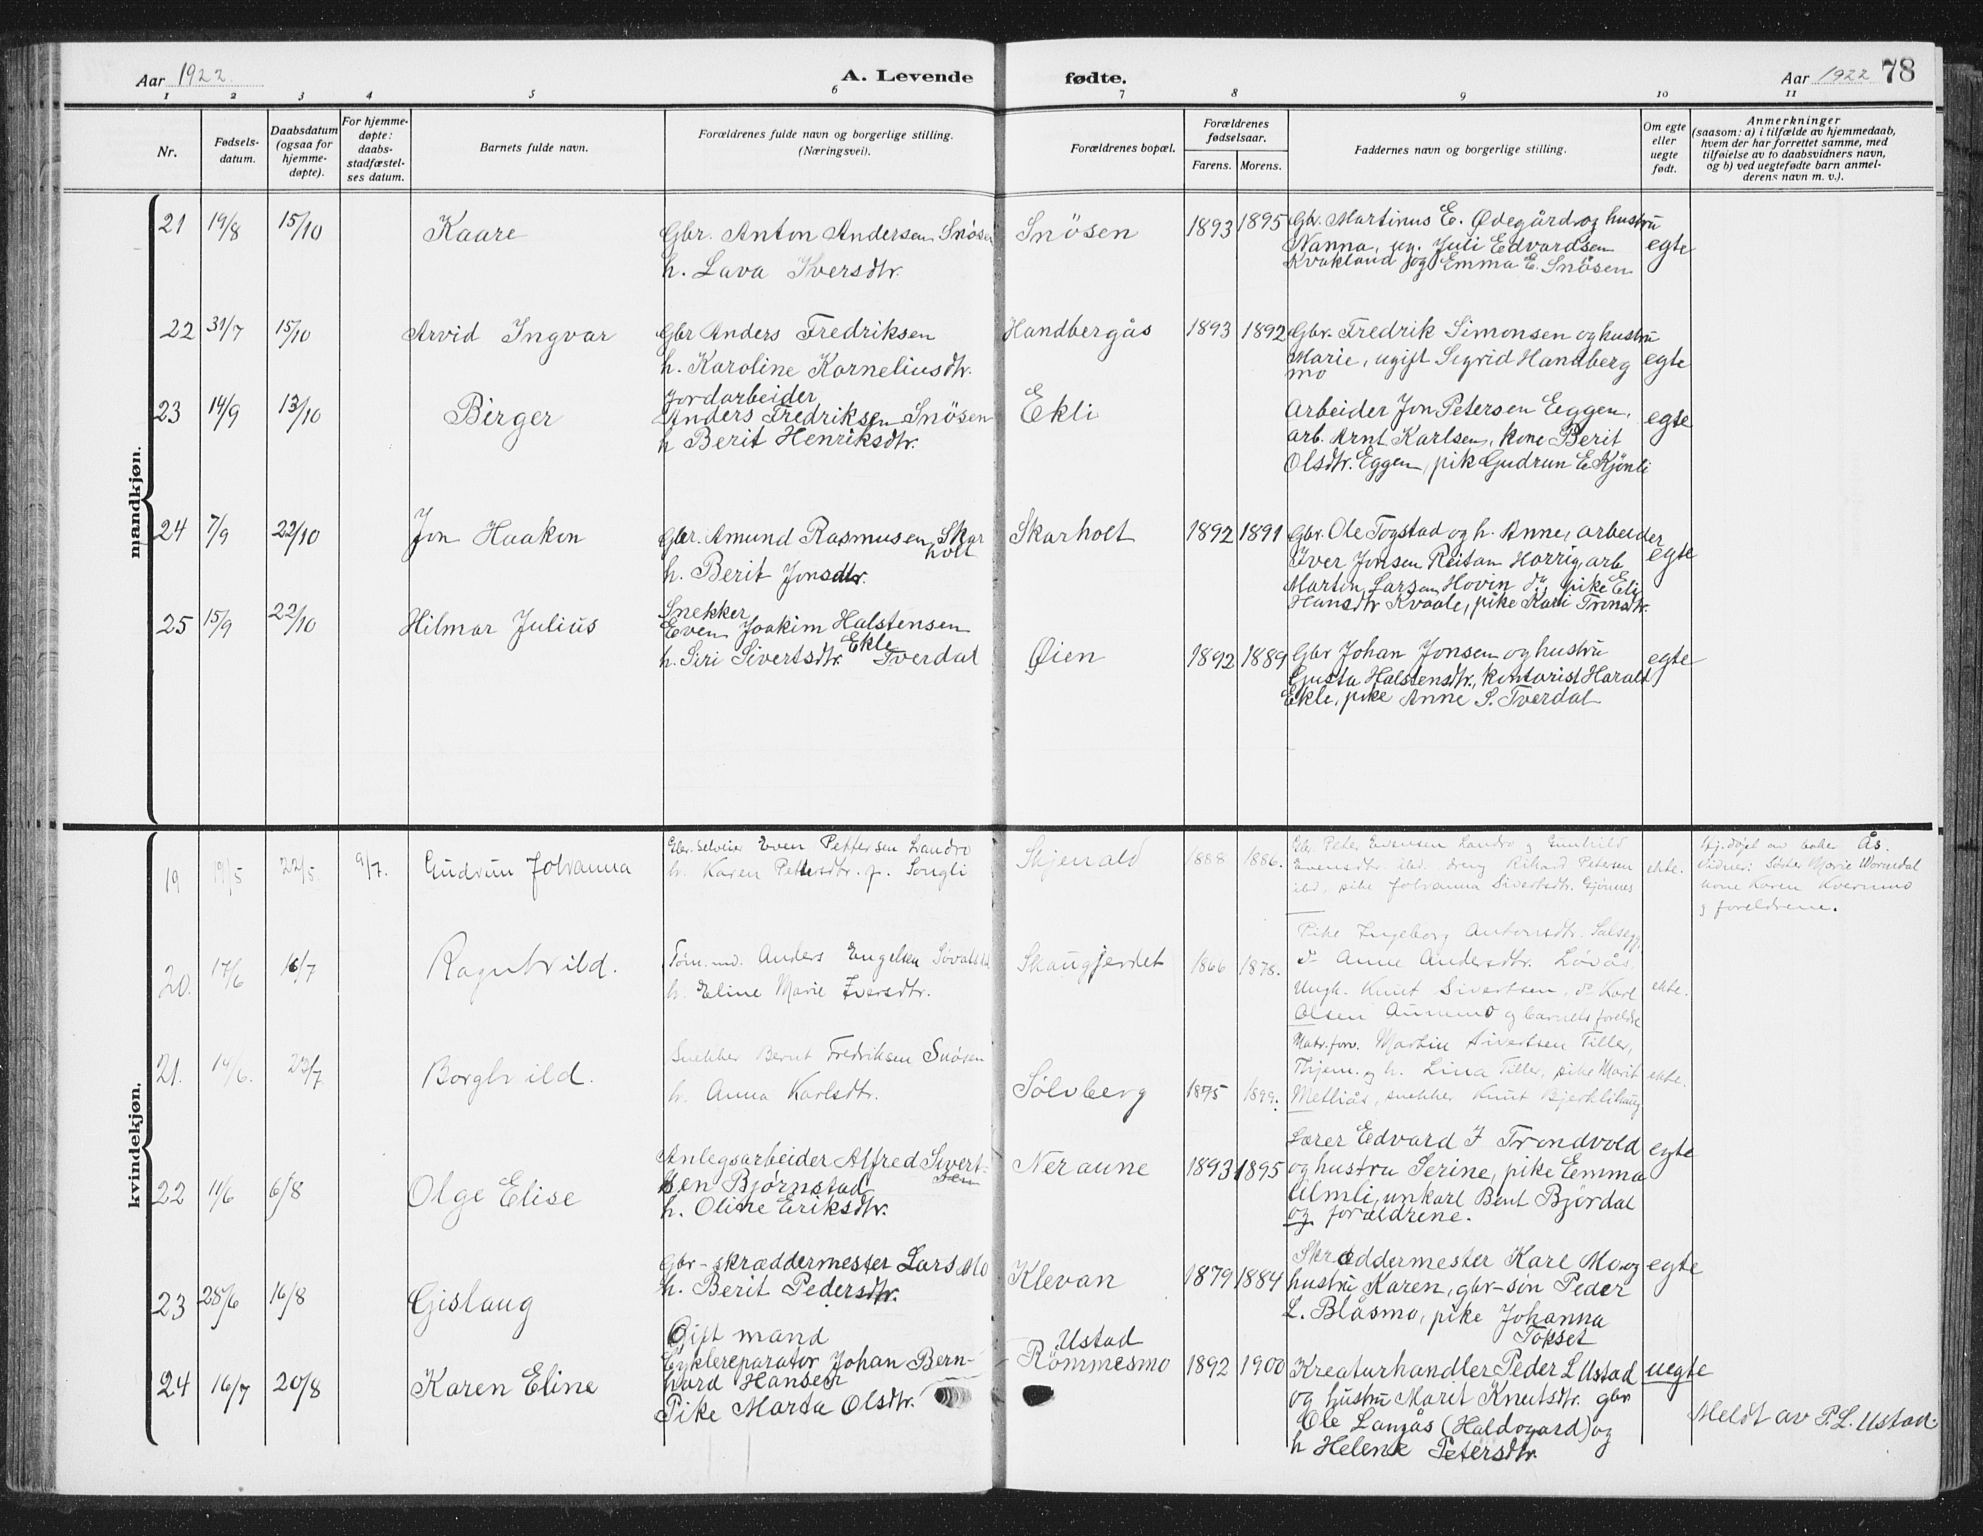 Aar 1922. A. Levende fødte. Aar 1922 78
1 2 3 4 5 6 7 8 9 10 11
Nr.
Fødsels-
datum.
Daabsdatum
(ogsaa for
hjemme-
døpte).
For hjemme-
døpte:
daabs-
stadfæstel-
ses datum.
Barnets fulde navn.
Forældrenes fulde navn og borgerlige stilling.
(Næringsvei).
Forældrenes bopæl.
Forældrenes
fødselsaar.
Farens. Morens.
Faddernes navn og borgerlige stilling.
Om egte
eller
uegte
født.
Anmerkninger
(saasom: a) i tilfælde av hjemmedaab,
hvem der har forrettet samme, med
tilføielse av to daabsvidners navn,
og b) ved uegtefødte barn anmel-
derens navn m. v.).
mandkjøn.
21 19/8 15/10 Kaare
Gbr. Anton Andersen Snøsen
h. Lava Iversdtr.
Snøsen 1893 1895
Gbr. Martinus E. Ødegård og hustru
Nanna, ug. Juli Edvardsen
Kvakland og Emma E. Snøsen
egte
22 31/7 15/10 Arvid Ingvar
Gbr Anders Fredriksen
h. Karoline Korneliusdtr.
Handbergås 1893 1892
Gbr. Fredrik Simonsen og hustru
Marie, ugift Sigrid Handberg
mo
egte
23 14/9 13/10 Birger
Jordarbeider
Anders Fredriksen Snøsen
h Berit Henriksdtr.
Ekli
Arbeider Jon Petersen Eggen,
arb. Arnt Karlsen, kone Berit
Olsdtr. Eggen, pik Gudrun E. Kjønli
egte
24 7/9 22/10 Jon Haakon
Gbr. Amund Rasmusen Skar
holt
h. Berit Jonsdtr.
Skarholt 1892 1891
Gbr. Ole Togstad og h. Anne, arbeider
Iver Jonsen Reitan Horrig, arb.
Martin Larsen Hovin do, pike Eli
Hansdtr Kvaale, pike Kari Tronsdtr.
egte
25 15/9 22/10 Hilmar Julius
Snekker
Even Joakim Halstensen
Ekle
h. Siri Sivertsdtr. Tverdal
Øien 1892 1889
Gbr Johan Jonsen og hustru
Gusta Halstensdtr., kontorist Harald
Ekle, pike Anne S. Tverdal
egte
kvindekjøn.
19 19/5 22/5. 9/7. Gudrun Johanna
Gbr. selveier Even Pettersen Landrø
h. Karen Pettersdtr. f. Songli
Skjenald 1888 1886.
Gbr. Peter Evensen Landrø og Gunhild
Evensdtr. ibd. dreng Rikard Petersen
ibd, pike Johanna Sivertsdtr. Gjønnes
ekte.
Hj.døpt av Ås.
Vidner: Søster Marie Wormdal
kone Karen Kvernmo
og foreldrene.
20. 17/6 16/7 Ragnhild.
Tøm.md. Anders Engelsen
h. Eline Marie Iversdtr.
Skaugjerdet 1866 1878.
Pike Ingeborg Antonsdtr. Salsegg,
do Anne Andersdtr. Løvås,
Ungk. Knut Sivertsen, do Karl
Olsen Aunmo og barnets foreldre
ekte.
21. 14/6. 23/7 Borghild.
Snekker Bernt Fredriksen Snøsen
h. Anna Karlsdtr.
Sølvberg 1875 1899.
Matr.forv. Martin Sivertsen Tiller,
Thjem. og h. Lina Tiller, pike Marit
Metliås, snekker Knut Bjerklihaug
ekte.
22 11/6 6/8 Olge Elise
Anlegsarbeider Alfred Sivert-
sen
sen Bjørnstad
h. Oline Eriksdtr.
Neraune 1893 1895
Lærer Edvard I Trondvold
og hustru Serine, pike Emma
Almli, unkarl Bent Bjørdal
og forældrene.
egte
23 28/6 16/8 Gislaug
Gbr-skræddermester Lars Mo
h. Berit Pedersdtr.
Klevan 1879 1884
Skræddermester Karl Mo og
hustru Karen, gbr-søn Peder
L. Blåsmo, pike Johanna
Topset
egte
24 16/7 20/8 Karen Eline
Gift mand
Cyklereparatør Johan Bern-
hard Hansen
Pike Marta Olsdtr.
Ustad
Römmesmo 1892 1900
Kreaturhandler Peder L Ustad
og hustru Marit Knutsdtr. gbr
Ole Langås (Haldogard) og
h Helene Petersdtr.
uegte
Meldt av P. L. Ustad.